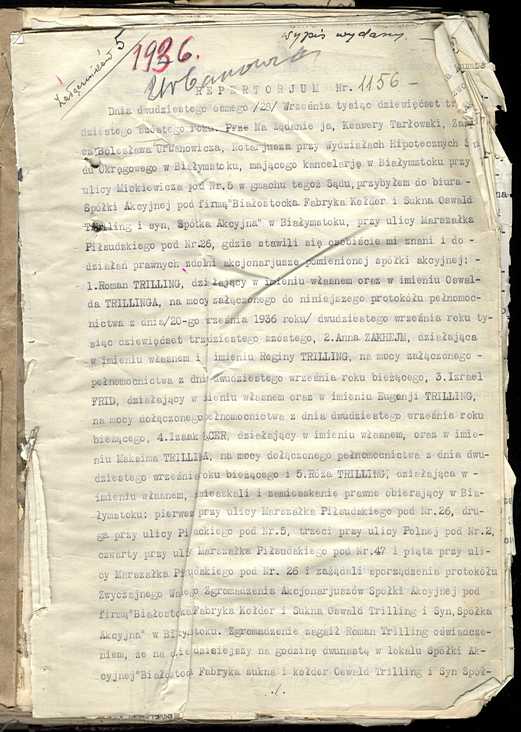 Załączników 5
1936.
wypis wydany.
Urbanowicz
REPERTORJUM Nr. 1156 -
Dnia dwudziestego ósmego /28/ Września tysiąc dziewięćset
dziestego szóstego roku. Prze Na żądanie ja, Ksawery Tarłowski, Zas
ca Bolesława Urbanowicza, Notarjusza przy Wydziałach Hipotecznych S
du Okręgowego w Białymstoku, mającego kancelarję w Białymstoku przy
ulicy Mickiewicza pod Nr.5 w gmachu tegoż Sądu, przybyłem do biura -
Spółki Akcyjnej pod firmą "Białostocka Fabryka Kołder i Sukna Oswald
Trilling i syn, Spółka Akcyjna" w Białymstoku, przy ulicy Marszałka
Piłsudskiego pod Nr.26, gdzie stawili się osobiście mi znani i do -
działań prawnych zdolni akcjonarjusze pomienionej spółki akcyjnej: -
1.Roman TRILLING, działający w imieniu własnem oraz w imieniu Oswal-
da TRILLINGA, na mocy załączonego do niniejszego protokółu pełnomoc-
nictwa z dnia /20-go września 1936 roku/ dwudziestego września roku ty-
siąc dziewięćset trzydziestego szóstego, 2.Anna ZAKHEJM, działająca
w imieniu własnem i imieniu Reginy TRILLING, na mocy załączonego -
pełnomocnictwa z dni dwudziestego września roku bieżącego, 3.Izrael
FRID, działający w ieniu własnem oraz w imieniu Eugenji TRILLING,
na mocy dołączonego pełnomocnictwa z dnia dwudziestego września roku
bieżącego, 4.Izaak działający w imieniu własnem, oraz w imie-
niu Maksima TRILLINA, na mocy dołączonego pełnomocnictwa z dnia dwu-
dziestego wrześni roku bieżącego i 5.Róża TRILLING, działająca w -
imieniu własnem, zamieszkali i zamieszkanie prawne obierający w Bia-
łymstoku: pierwsz przy ulicy Marszałka Piłsudskiego pod Nr.26, dru-
ga przy ulicy Pi ackiego pod Nr.5, trzeci przy ulicy Polnej pod Nr.2,
czwarty przy uli Marszałka Piłsudskiego pod Nr.47 i piąta przy uli-
cy Marszałka Piłsudskiego pod Nr. 26 i zażądali sporządzenia protokółu
Zwyczajnego Wa ego Zgromadzenia Akcjonarjuszów Spółki Akcyjnej pod
firmą "Białostocka Fabryka Kołder i Sukna Oswald Trilling i Syn, Spółka
Akcyjna" w Bi ymstoku. Zgromadzenie zagaił Roman Trilling oświadcze-
niem, że na dzień dzisiejszy na godzinę dwunastą w lokalu Spółki Ak-
cyjnej "Białostoc Fabryka sukna i kołder Oswald Trilling i Syn Spół-
./.